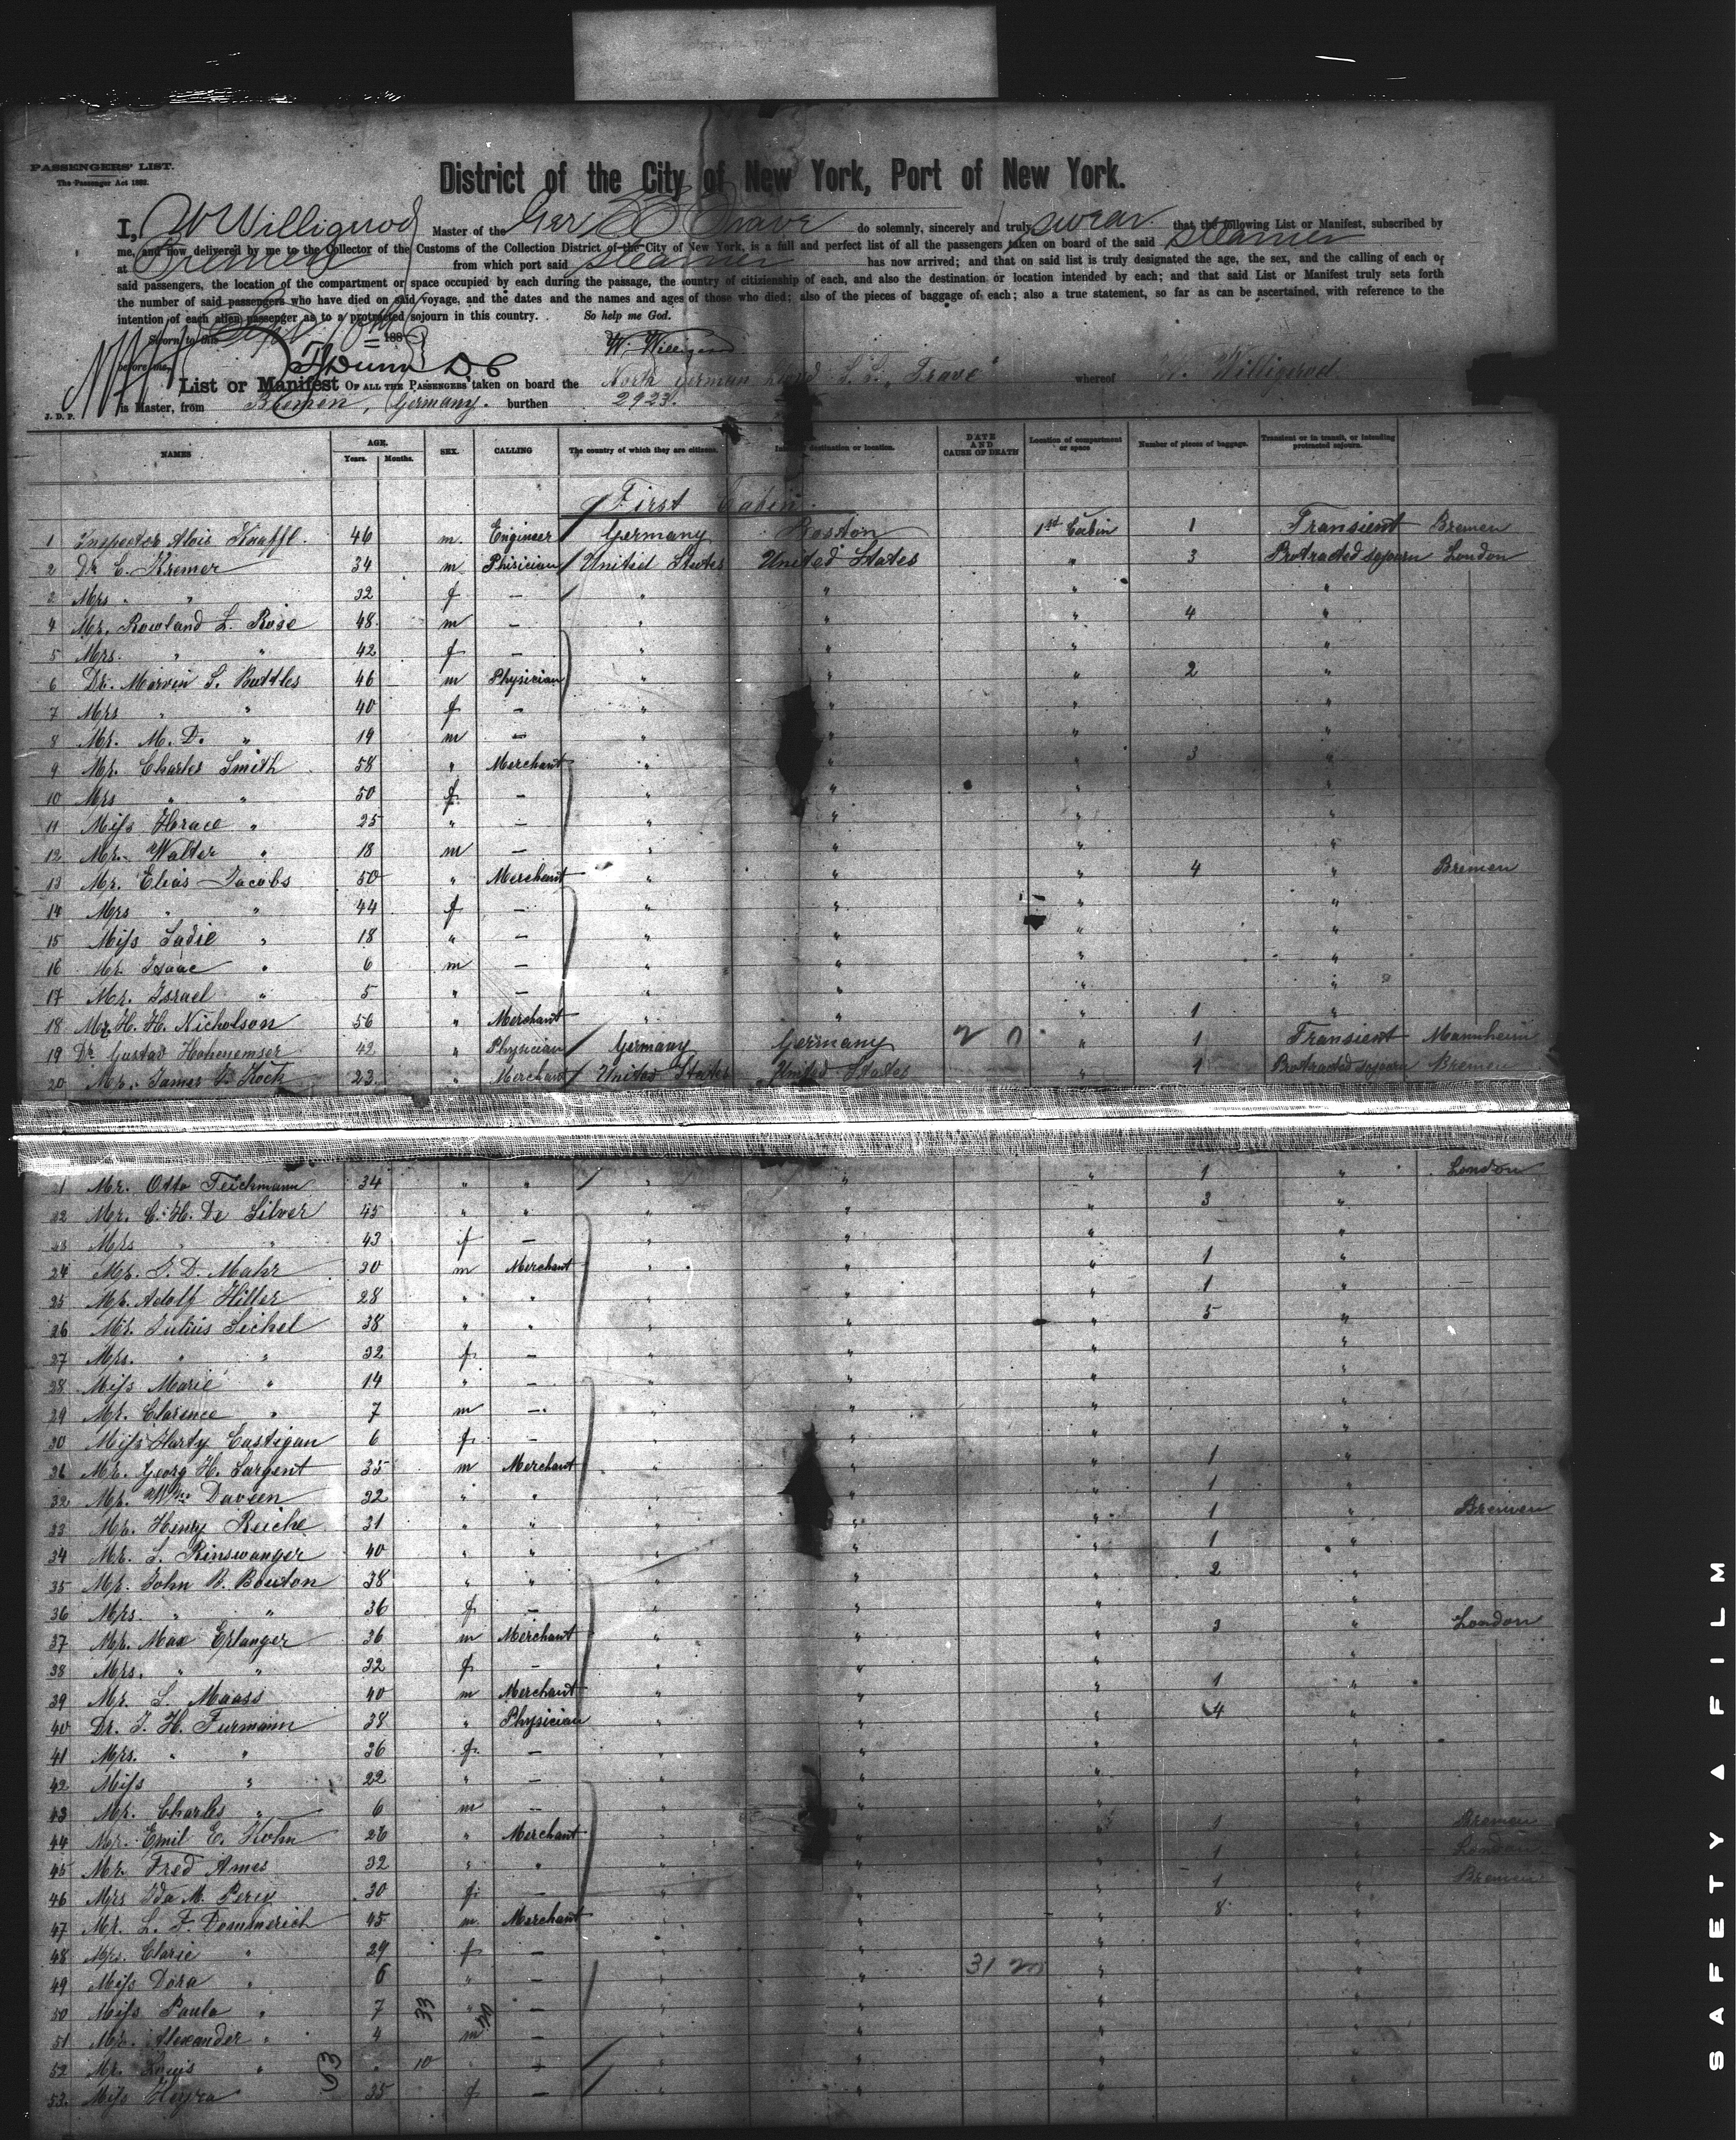 PASSENGERS' LIST.
The Passenger Act 1882.
District of the City of New York, Port of New York.
I, W Willigerod Master of the Ger SS Trave do solemnly, sincerely and truly swear that the following List or Manifest, subscribed by
me, and now delivered by me to the Collector of the Customs of the Collection District of the City of New York, is a full and perfect list of all the passengers taken on board of the said steamer
at Bremen from which port said steamer has now arrived; and that on said list is truly designated the age, the sex, and the calling of each of
said passengers, the location of the compartment or space occupied by each during the passage, the country of citizenship of each, and also the destination or location intended by each; and that said List or Manifest truly sets forth
the number of said passengers who have died on said voyage, and the dates and the names and ages of those who died; also of the pieces of baggage of each; also a true statement, so far as can be ascertained, with reference to the
intention of each alien passenger as to a protracted sojourn in this country. So help me God.
Sworn to this 188
before me, W. Willigerod
List or Manifest OF ALL THE PASSENGERS taken on board the North german Lloyd S.S. "Trave" whereof W. Willigerod
J. D. P. is Master, from Bremen, Germany. burthen 2923.
NAMES AGE. Years. Months. SEX. CALLING The country of which they are citizens. destination or location. DATE AND CAUSE OF DEATH Location of compartment or space Number of pieces of baggage. Transient or in transit, or intending protracted sojourn.
First Cabin
1 Inspector Alois 46 m. Engineer Germany Boston 1st Cabin 1 Transient Bremen
2 Dr. C. Kremer 34 m Phisician United States United States " 3 Protracted sojourn London
2 Mrs " " 32 f — " " " "
4 Mr. Rowland L. Rose 48 m — " " " 4 "
5 Mrs. " " 42 f — " " " "
6 Dr. Marvin S. Buttles 46 m Physician " " " 2 "
7 Mrs " " 40 f — " " " "
8 Mr. M. D. " 19 m — " " " "
9 Mr. Charles Smith 58 " Merchant " " " 3 "
10 Mrs " " 50 f — " " " "
11 Miss Horace " 25 " — " " " "
12 Mr. Walter " 18 m — " " " "
13 Mr. Elias Jacobs 50 " Merchant " " " 4 " Bremen
14 Mrs " " 44 f — " " " "
15 Miss Sadie " 18 " — " " " "
16 Mr. Isaac " 6 m — " " " "
17 Mr. Israel " 5 " — " " " "
18 Mr. H. H. Nicholson 56 " Merchant " " " 1 "
19 Dr. Gustav Hohenemser 42 " Physician Germany Germany " 1 Transient Mannheim
20 Mr. James F. Hock 23 " Merchant United States United States " 1 Protracted sojourn Bremen
21 Mr. Otto Teichmann 34 " " " " " 1 " London
22 Mr. C. H. De Silver 45 " " " " " 3 "
23 Mrs " " 43 f — " " " "
24 Mr. S. D. Mahr 30 m Merchant " " " 1 "
25 Mr. Adolf Hiller 28 " " " " " 1 "
26 Mr. Julius Sichel 38 " " " " " 5 "
27 Mrs. " " 32 f — " " " "
28 Miss Marie " 14 " — " " " "
29 Mr. Clarence " 7 m — " " " "
30 Miss Harty Castigan 6 f — " " " "
31 Mr. Georg H. Sargent 35 m Merchant " " " 1 "
32 Mr. Wm. Daveen 32 " " " " " 1 "
33 Mr. Henry Reiche 31 " " " " " 1 " Bremen
34 Mr. S. Rinswanger 40 " " " " " 1 "
35 Mr. John B. Bouton 38 " " " " " 2 "
36 Mrs. " " 36 f — " " " "
37 Mr. Max Erlanger 36 m Merchant " " " 3 " London
38 Mrs. " " 32 f — " " " "
39 Mr. S. Maass 40 m Merchant " " " 1 "
40 Dr. J. H. Furmann 38 " Physician " " " 4 "
41 Mrs. " " 36 f — " " " "
42 Miss " 22 " — " " " "
43 Mr. Charles " 6 m — " " " "
44 Mr. Emil E. Kohn 26 " Merchant " " " 1 " Bremen
45 Mr. Fred Ames 32 " " " " " 1 " London
46 Mrs Ida M. Percy 30 f — " " " 1 " Bremen
47 Mr. L. F. Dommerich 45 m Merchant " " " 8 "
48 Mrs. Clarie " 29 f — " " " "
49 Miss Dora " 6 " — " " 31 "
50 Miss Paula " 7 33 " — " " " "
51 Mr. Alexander " 4 m — " " " "
52 Mr. Louis " 63 " 10 " — " " " "
53. Miss 35 f — " " " "
SAFETY FILM